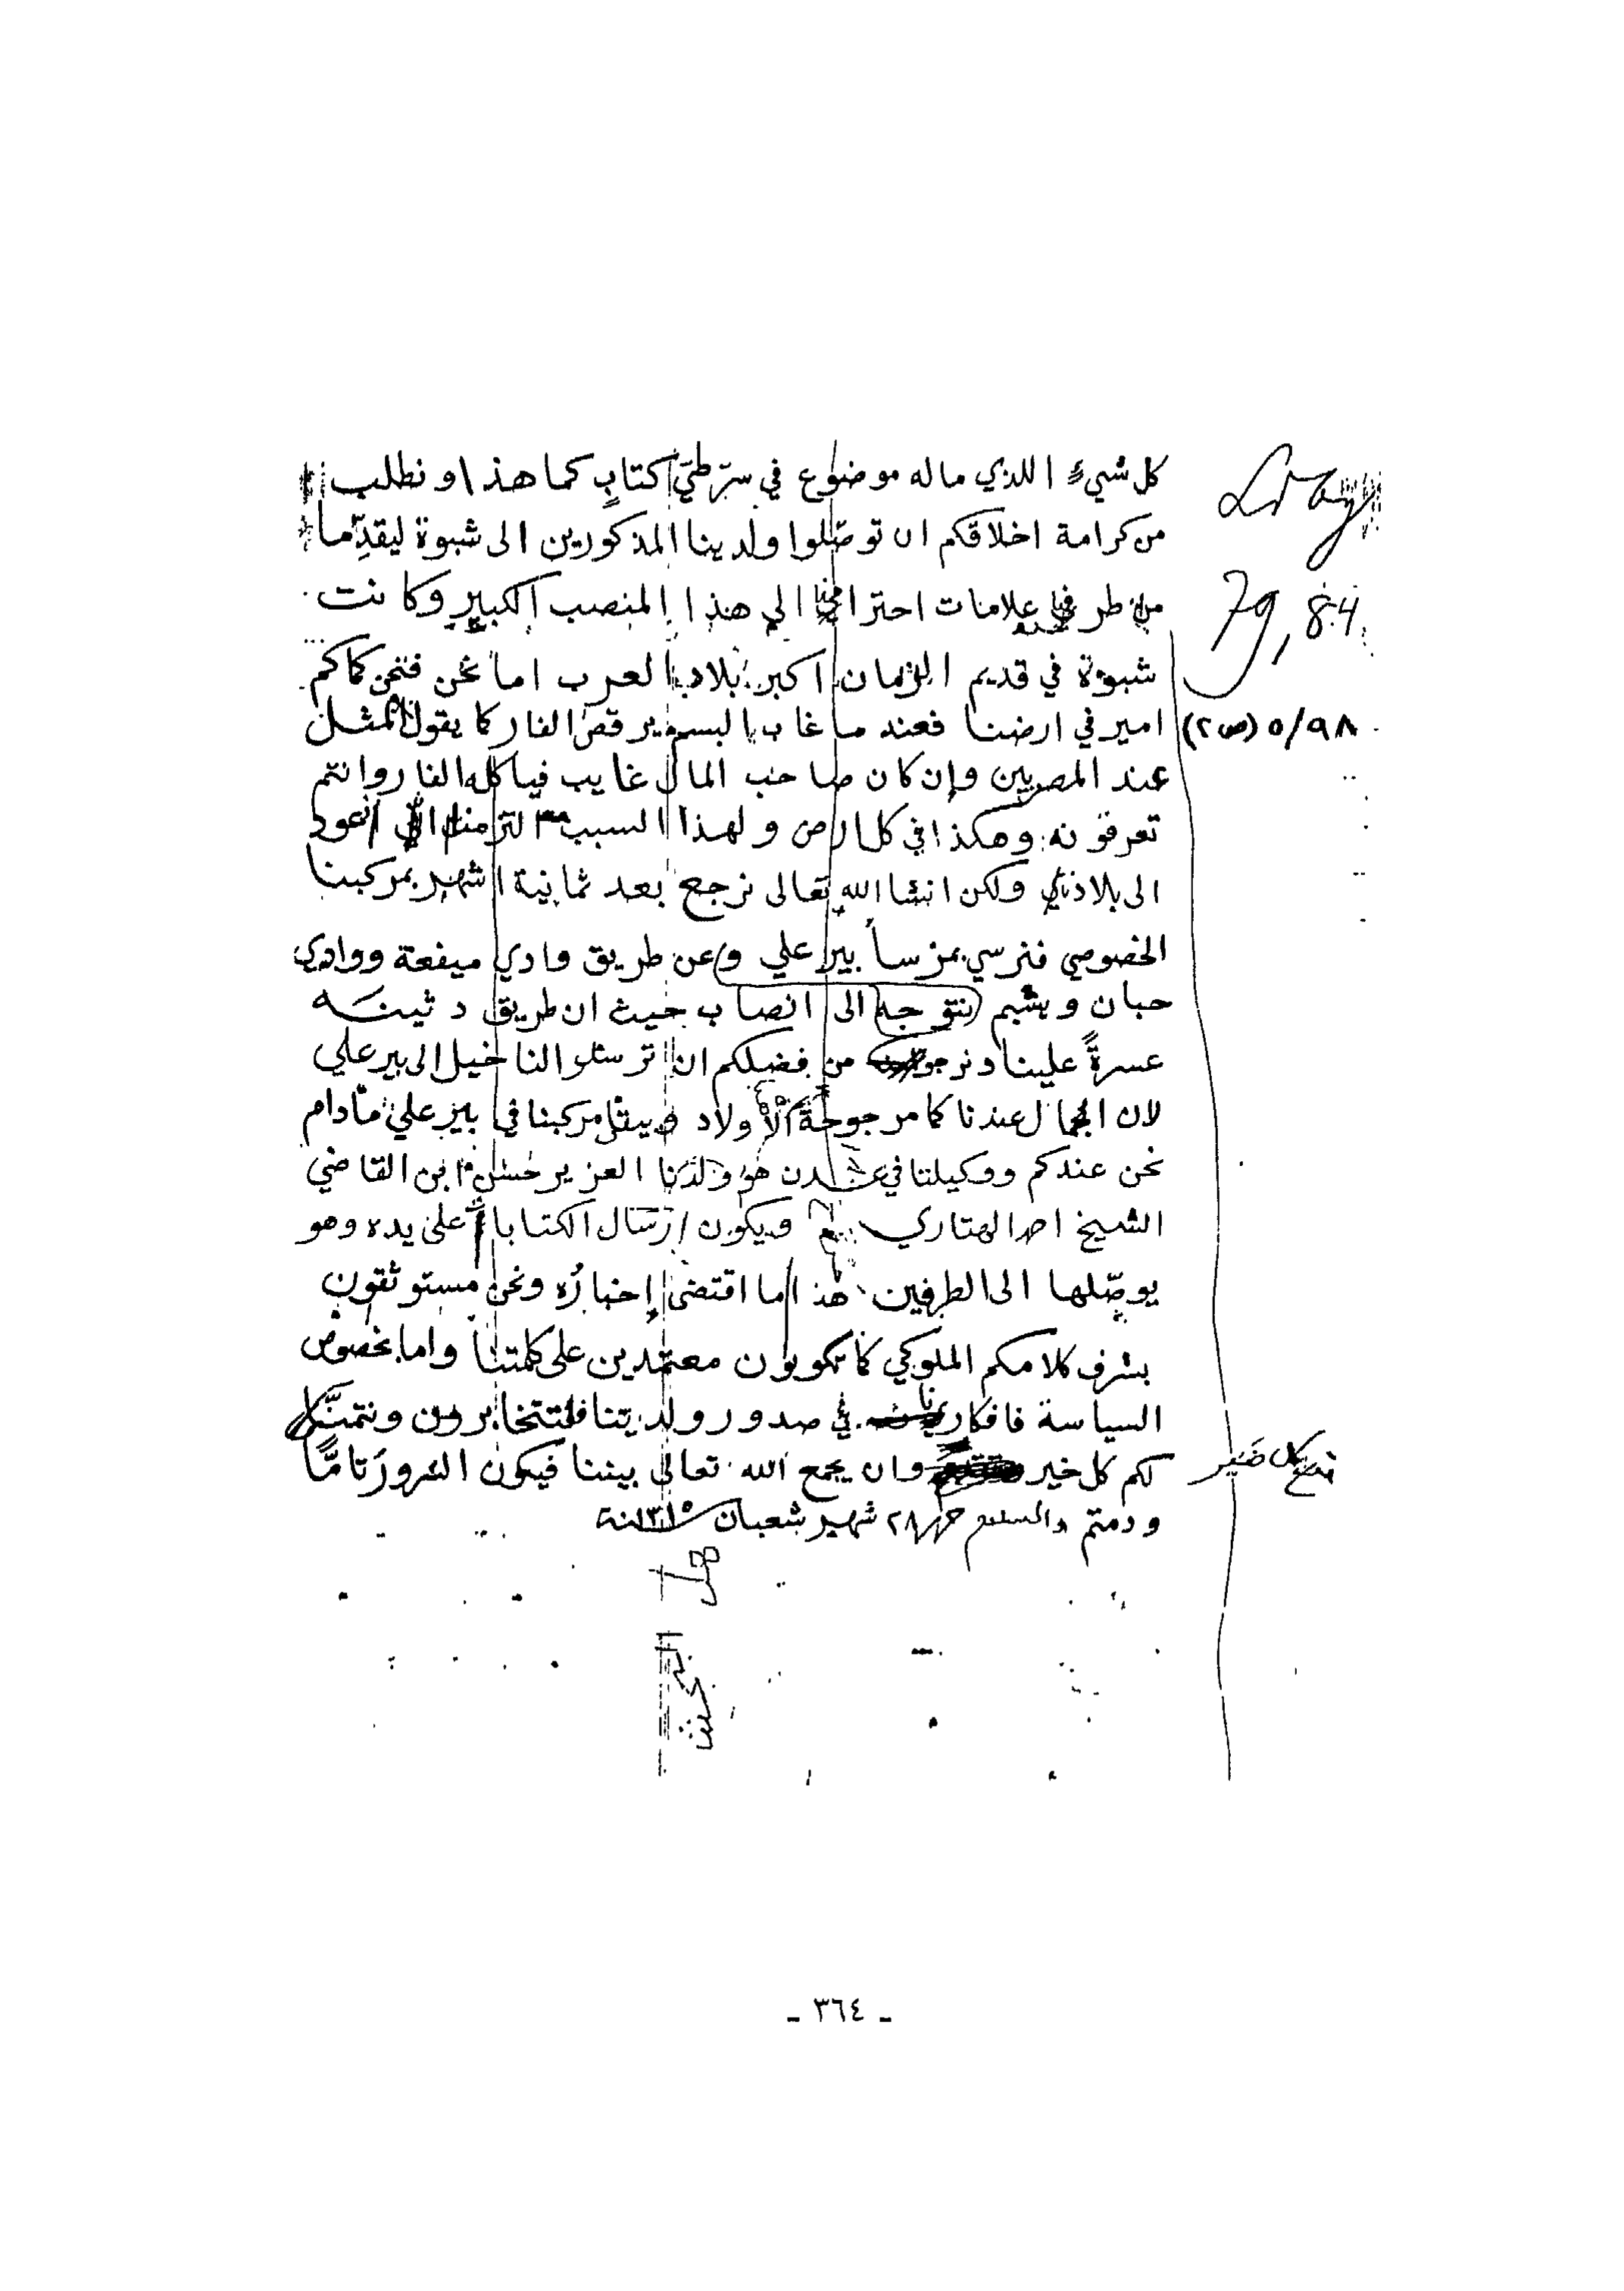 كل شيءٍ اللذي ماله موضوع في سرّ طيّ كتابٍ كما هذا ونطلب
من كرامة اخلاقكم ان توصّلوا ولدينا المذكورين الى شبوة ليقدّما
من طرفنا علامات احترامنا الى هذا المنصب الكبير وكانت
شبوة في قديم الزمان اكبر بلاد العرب اما نحن فنحن كما كم
امير في ارضنا فعند ما غاب البسم يرقص الفار كما يقول المثل
عند المصريين وإن كان صاحب المال غايب فياكله الفار وانتم
تعرفونه وهكذا في كل ارض ولهذا السبب التزمنا ان نعود
الى بلادنا ولكن انشا الله تعالى نرجع بعد ثمانية اشهر بمركبنا
الخصوصي فنرسي بمرسأ بير علي وعن طريق وادي ميفعة ووادي
حبان ويشبم نتوجه الى انصاب حيث ان طريق دثينه
عسرةً علينا ونرجو من فضلكم ان ترسلو النا خيل الى بير علي
لان الجمال عندنا كما مرجوحة الأولاد ويبقا مركبنا في بير علي ما دام
نحن عندكم ووكيلنا في عدن هو ولدنا العزيز حسن ابن القاضي
الشيخ احمد الهتاري ويكون ارسال الكتابات على يده وهو
يوصّلها الى الطرفين هذا ما اقتضى إخبارُه ونحن مستوثقون
بشرف كلامكم الملوكي كما تكونون معتمدين على كلمتنا واما بخصوص
السياسة فافكارنا في صدور ولدينا فتتخابرون ونتمنّى
لكم كل خير وان يجمع الله تعالى بيننا فيكون السرورُ تامًّا
ودمتم والسلام حرر ٢٨ شهر شعبان سنة ١٣١٥
79, 84
٥/٩٨ (ص ٢)
ـ ٣٦٤ ـ